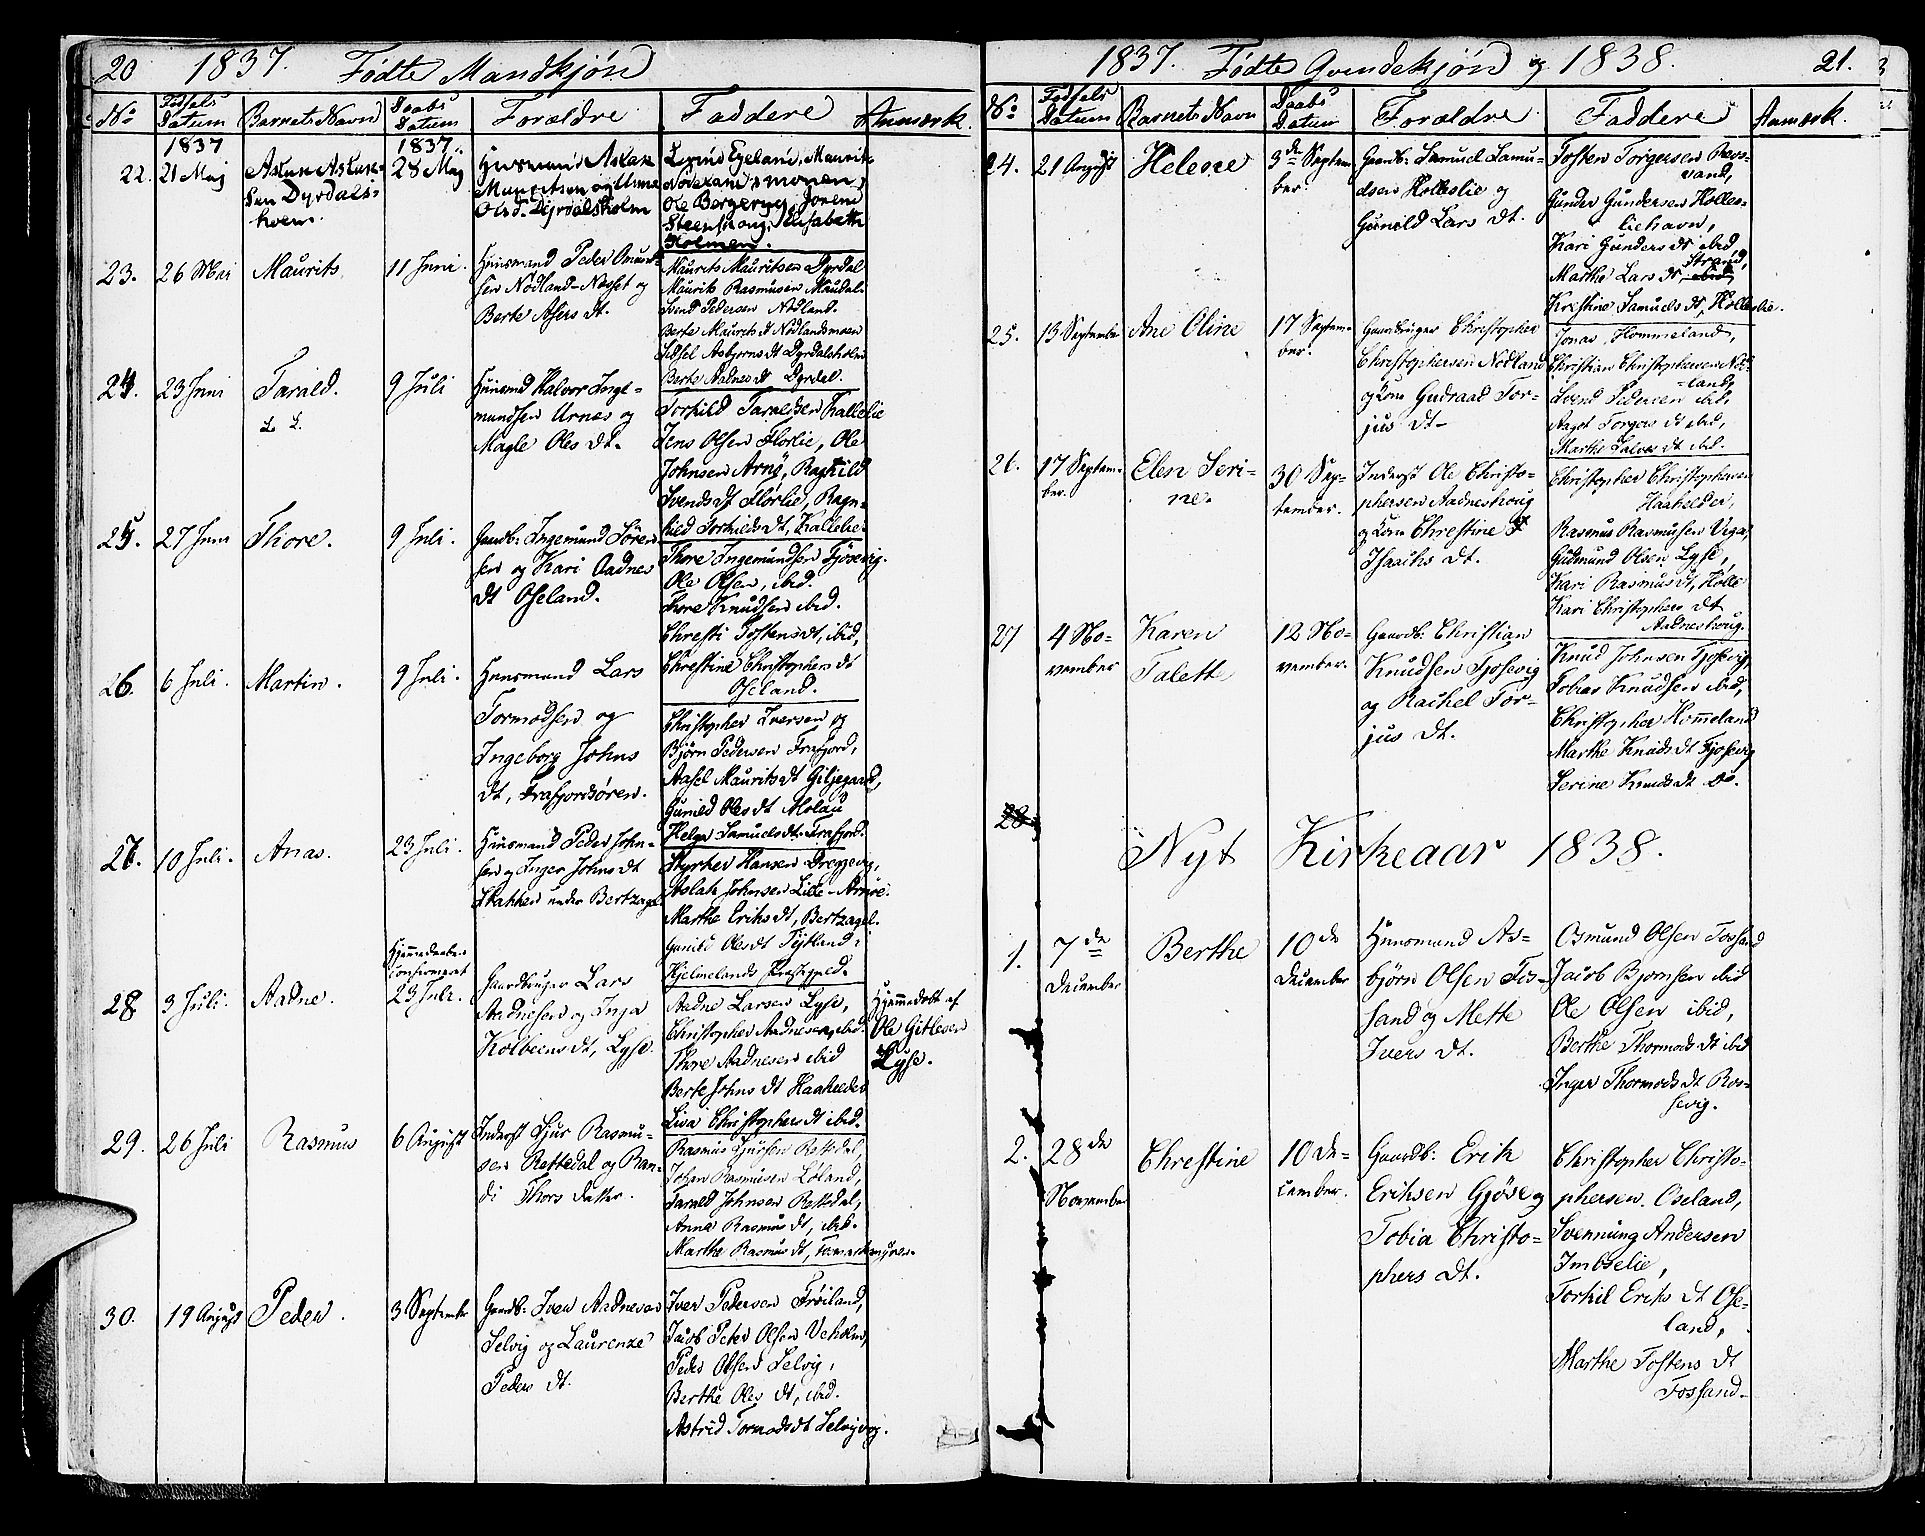 20 1837. Födte Mandkjön
No Födsels Datum Barnets Navn Daabs Datum Forældre Faddere Anmærk.
1837 1837.
22. 21 Maj Aslak Aslak- 28 Maj Huusmand Aslak
sen Dyrdals-
holm.
Mauritsen og Anne
Ols d. Dyrdalsholm
Svend Egeland, Maurits
Ole Bergeryg, Jorem
Elisabeth
Holmen.
23. 26 Mai Maurits. 11 Juni. Huusmand Peder Omund-
sen Nødland-Næsset og
Berte Asers dt.
Maurits Mauritsen Dyrdal
Maurits Rasmusen Maudal.
Svend Pedersen Nødland.
Berte Maurits dt Nødlandsmoen
Sidsel Asbjørns dt Dyrdalsholm
Berte Aadnes dt Dyrdal.
24. 23 Juni Tarald. 9 Juli Huusmd Halvor Inge-
mundsen Arnøs og
Magle Oles dt.
Torkild Taraldsen Kallelie
Jens Olsen Florlie, Ole
Johnsen Arnø, Ragnild
Svends dt Florlie, Ragn-
hild Torkilds dt, Kallelie.
25. 27 Juni Thore. 9 Juli. Gaardb: Ingemund Sören
sen og Kari Aadnes
dt Oseland.
Thore Ingemundsen Fjøsevig.
Ole Olsen, ibid.
Thore Knudsen ibid.
Christi Tostens dt, ibid,
Christine Christophers dt
Oseland.
26. 6 Juli. Martin. 9 Juli. Huusmand Lars
Tormodsen og
Ingeborg Johns
dt, Frafjordsøren.
Christopher Iversen og
Bjørn Pedersen Frafjord,
Aasel Maurits dt Giljegaard,
Gunild Oles dt Molau
Helga Samuels dt. Frafjord.
27. 10 Juli. Anas. 23 Juli. Huusmand Peder John-
sen og Inger Johns dt
Skakken under Bertzagel
Styrker Hansen Dreggevig,
Aslak Johnsen Lille-Arnøe.
Marthe Eriks dt, Bertzagel.
Gunild Oles dt Tytland i
Hjelmelands Præstegjeld.
28 3 Juli. Aadne. Hjemmedaaben
confirmeret
23 Juli. Gaardbruger Lars
Aadnesen og Inja
Kolbeens dt, Lyse.
Aadne Larsen Lyse,
Christopher Aadnesen, ibid.
Thore Aadnesen ibid
Berte Johns dt Haaheder
Lisa Christophers dt ibid.
Hjemmedøbt af
Ole Gitlesen
Lyse.
29. 26 Juli Rasmus 6 August Inderst Sjur Rasmu-
sen Rettedal og Ran-
di Thors datter.
Rasmus Sjursen Rettedal,
Johan Rasmusen Løland,
Tarald Johnsen Rettedal,
Anna Rasmus dt, ibid.
Marthe Rasmus dt,
30. 19 August Peder. 3 September Gaardb: Iver Aadnesen
Selvig og Laurenze
Peders dt.
Iver Pedersen Frøiland,
Jacob Peter Olsen Veholm,
Peder Olsen Selvig,
Berthe Oles dt, ibid.
Astrid Tormods dt Selvigvog.
1837. Födte Qvindekjön og 1838. 21.
No Födsels Datum Barnets Navn Daabs Datum Forældre Faddere Anmærk.
24. 21 August Helene 3de Septem-
ber. Gaardb: Samuel Samu-
elsen Holleslie og
Gunild Lars dt.
Tosten Torgersen Ress-
vand,
Gunder Gundersen Holles-
liehavn,
Kari Gunders dt ibid,
Marthe Lars dt ibid Strand,
Kristine Samuels dt, Holleslie.
25. 13 September Ane Oline 17 Septem-
ber. Gaardbruger Christopher
Christophersen Nødland
og Kone Gudraad Tor-
jus dt-
Jonas Hommeland,
Christian Christophersen Nød-
land,
Svend Pedersen ibid,
Aagot Torgers dt ibid,
Marthe Salves dt ibd.
26. 17 Septem-
ber. Elen Seri-
ne. 30 Sep-
tember. Inderst Ole Christo-
phersen Aadneshoug
og Kone Christine
Isaachs dt.
Christopher Christophersen
Haaheder,
Rasmus Rasmusen Vega,
Gudmund Olsen Lyse,
Kari Rasmus dt, Holle
Kari Christophers dt
Aadneshoug.
27 4 No-
vember Karen
Talette 12 No-
vember. Gaardb: Christian
Knudsen Fjosevig
og Rachel Tor-
jus dt.
Knud Johnsen Fjosevig,
Tobias Knudsen ibid,
Christopher Hommeland
Marthe Knuds dt Fjosevig
Serine Knuds dt do.
28.
Nyt Kirkeaar 1838.
1. 7de
December Berthe 10de
December Huusmand As-
bjørn Olsen Fos-
sand og Mette
Ivers dt.
Osmund Olsen Fossand
Jacob Bjornsen ibid
Ole Olsen ibid,
Berthe Thormods dt ibid
Inger Thormods dt Ros-
sevig.
2. 28de
November Christine 10 De-
cember. Gaardb: Erik
Eriksen Gjøse og
Tobia Christo-
phers dt.
Christopher Christo-
phersen Oseland,
Svennung Andersen
Imbselie,
Torkil Eriks dt Ose-
land,
Marthe Tostens dt
Fossand.